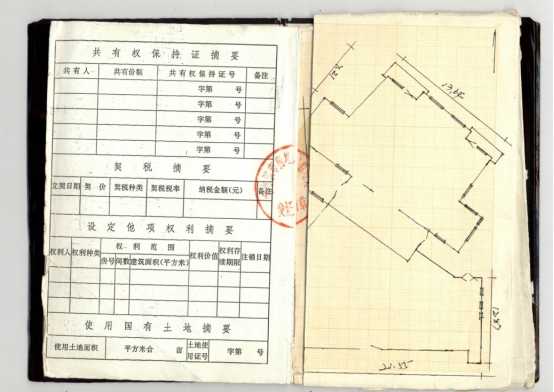 共有权保持证摘要
共有人 共有份额 共有权保持证号 备注
字第 号
字第 号
字第 号
字第 号
字第 号
契税摘要
立契日期 契价 契税种类 契税税率 纳税金额(元) 备注
设定他项权利摘要
权利人 权利种类 权利范围 权利价值 权利存续期限 注销日期
房号 间数 建筑面积(平方米)
使用国有土地摘要
使用土地面积 平方米合 亩 土地使用证号 字第 号
13.65